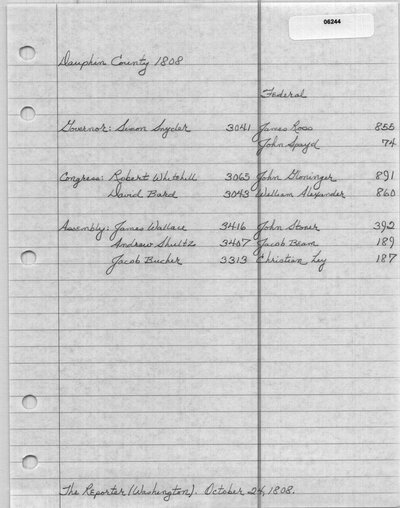 06244
Dauphin County 1808
Federal
Governor: Simon Snyder 3041 James Ross 855
John Spayd 74
Congress: Robert Whitehill 3065 John Gloninger 891
David Bard 3043 William Alexander 860
Assembly: James Wallace 3416 John Stoner 392
Andrew Shultz 3407 Jacob Beam 189
Jacob Bucher 3313 Christian Ley 187
The Reporter (Washington). October 24, 1808.